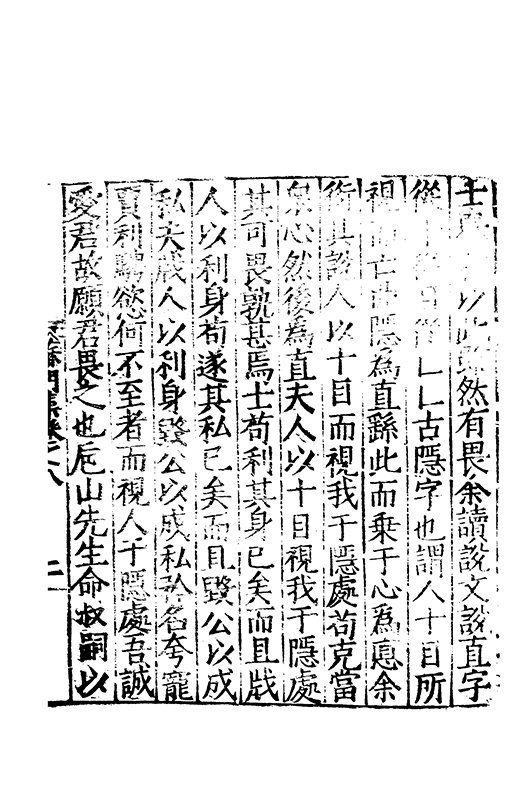 士以此雖然有畏余讀說文說直字
從十從目從乚乚古隱字也謂人十目所
視而亡所隱為直繇此而乘于心為悳余
衍其說人以十目而視我于隱處苟克當
眾心然後為直夫人以十目視我于隱處
其可畏孰甚焉士苟利其身已矣而且戕
人以利身苟遂其私已矣而且毀公以成
私夫戕人以利身毀公以成私矜名夸寵
賈利騁慾何不至者而視人于隱處吾誠
愛君故願君畏之也巵山先生命叔嗣以